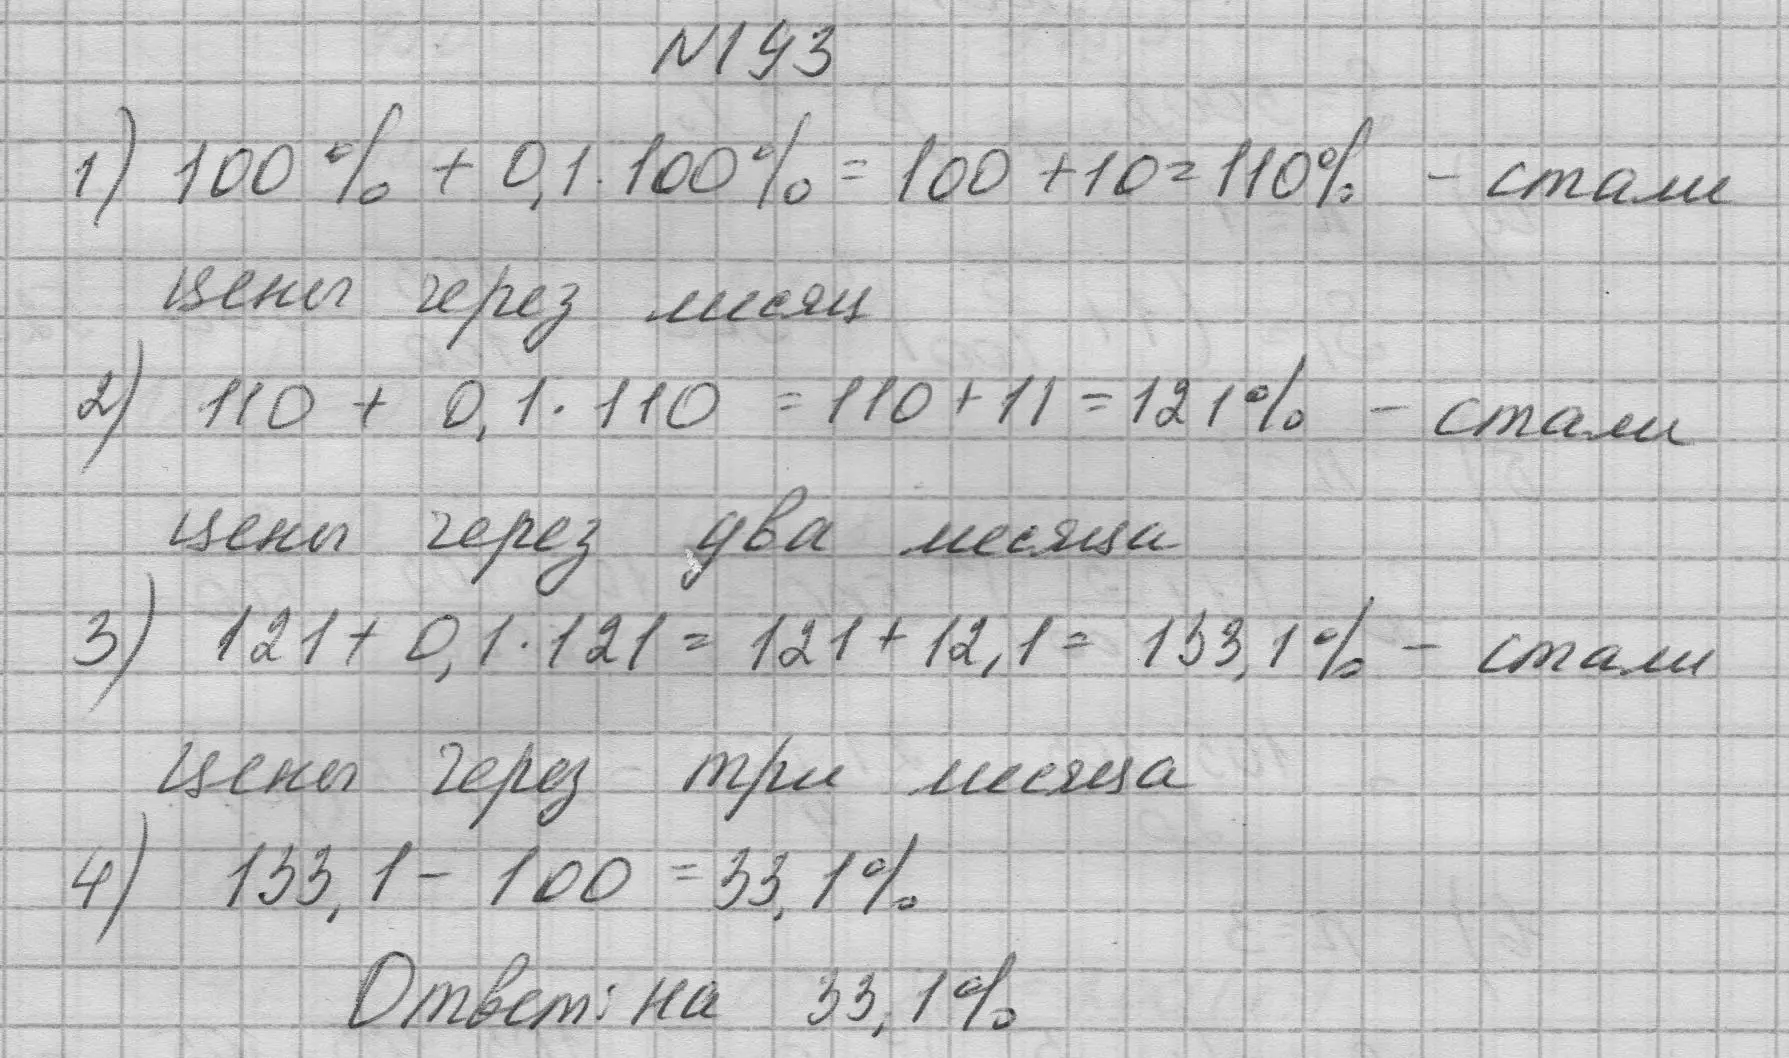 №193
1) 100% + 0,1·100% = 100 + 10 = 110% - стали
цены через месяц
2) 110 + 0,1·110 = 110 + 11 = 121% - стали
цены через два месяца
3) 121 + 0,1·121 = 121 + 12,1 = 133,1% - стали
цены через три месяца
4) 133,1 - 100 = 33,1%
Ответ: на 33,1%